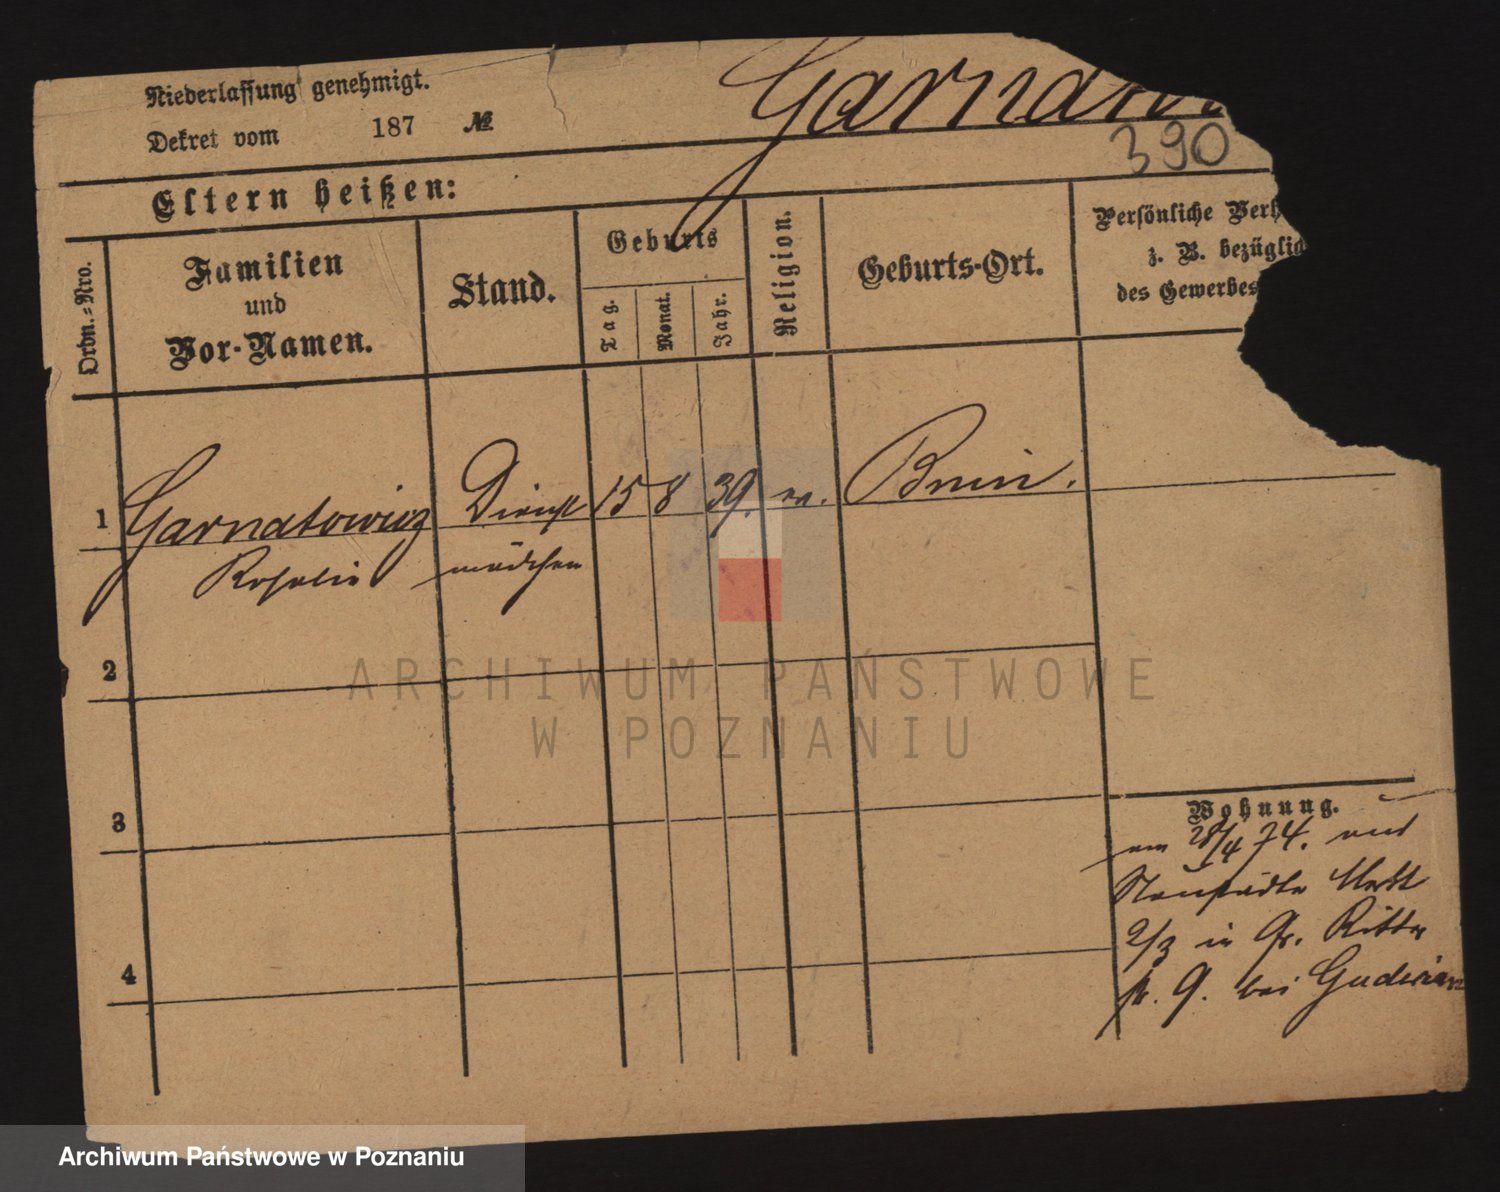 Niederlassung genehmigt.
Dekret vom 187 №
Garnatow
390
Eltern heißen:
Ordn.-Nro.
Familien
und
Vor-Namen.
Stand.
Geburts
Tag.
Monat.
Jahr.
Religion.
Geburts-Ort.
Persönliche Verh
z. B. bezüglic
des Gewerbes
1 Garnatowicz Dienst 15 8 39. Bnin.
Rosalie mädchen
2
3
4
Wohnung.
am 28/4 74. aus
Neustädt. Markt
2/3 in Gr. Ritter
str. 9. bei Guderian
ARCHIWUM PAŃSTWOWE
W POZNANIU
Archiwum Państwowe w Poznaniu